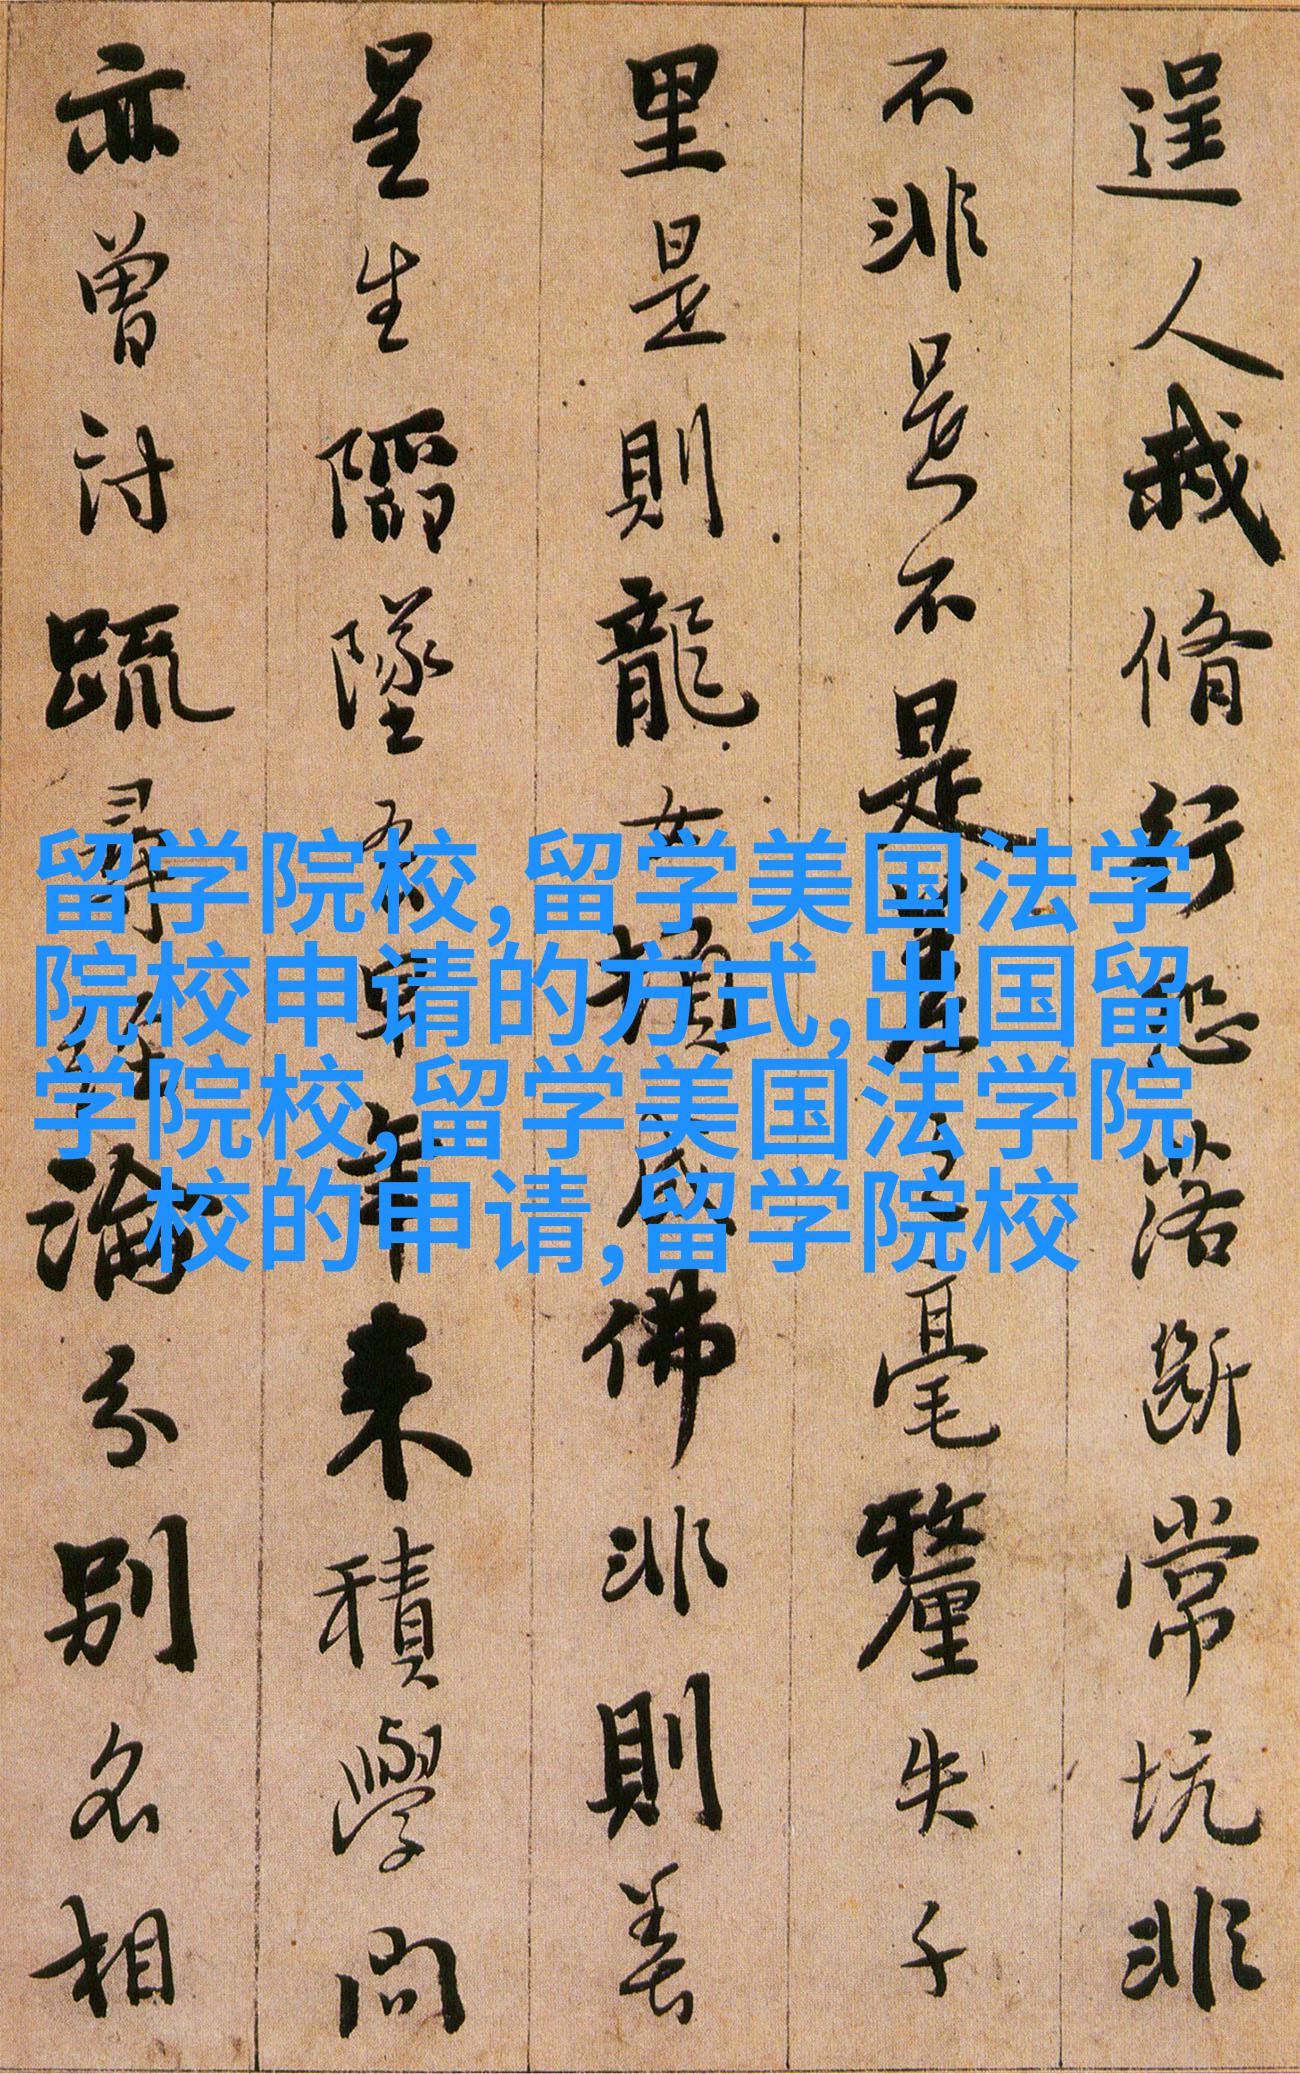 逞人我脩行恐落断常坑非
不非是不是是之毫釐失千
里是則龍女頓成佛非則善
星生陷墜吾早年来積學問
亦曾討䟽尋經論分别名相
留学院校,留学美国法学
院校申请的方式,出国留
学院校,留学美国法学院
校的申请,留学院校